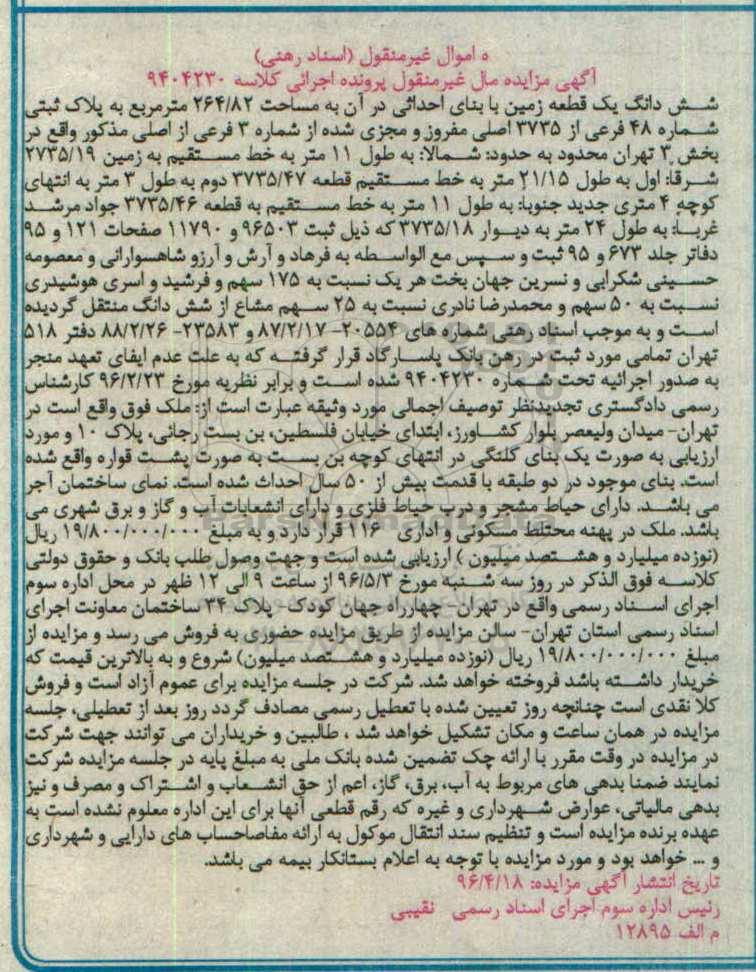 ه اموال غیرمنقول (اسناد رهنی)
آگهی مزایده مال غیرمنقول پرونده اجرائی کلاسه ۹۴۰۴۲۳۰
شش دانگ یک قطعه زمین با بنای احداثی در آن به مساحت ۲۶۴/۸۲ مترمربع به پلاک ثبتی
شماره ۴۸ فرعی از ۳۷۳۵ اصلی مفروز و مجزی شده از شماره ۳ فرعی از اصلی مذکور واقع در
بخش ۳ تهران محدود به حدود: شمالا: به طول ۱۱ متر به خط مستقیم به زمین ۲۷۳۵/۱۹
شرقا: اول به طول ۲۱/۱۵ متر به خط مستقیم قطعه ۳۷۳۵/۴۷ دوم به طول ۳ متر به انتهای
کوچه ۴ متری جدید جنوبا: به طول ۱۱ متر به خط مستقیم به قطعه ۳۷۳۵/۴۶ جواد مرشد
غربا: به طول ۲۴ متر به دیوار ۳۷۳۵/۱۸ که ذیل ثبت ۹۶۵۰۳ و ۱۱۷۹۰ صفحات ۱۲۱ و ۹۵
دفاتر جلد ۶۷۳ و ۹۵ ثبت و سپس مع الواسطه به فرهاد و آرش و آرزو شاهسوارانی و معصومه
حسینی شکرایی و نسرین جهان بخت هر یک نسبت به ۱۷۵ سهم و فرشید و اسری هوشیدری
نسبت به ۵۰ سهم و محمدرضا نادری نسبت به ۲۵ سهم مشاع از شش دانگ منتقل گردیده
است و به موجب اسناد رهنی شماره های ۲۰۵۵۴- ۸۷/۲/۱۷ و ۲۳۵۸۳- ۸۸/۲/۲۶ دفتر ۵۱۸
تهران تمامی مورد ثبت در رهن بانک پاسارگاد قرار گرفته که به علت عدم ایفای تعهد منجر
به صدور اجرائیه تحت شماره ۹۴۰۴۲۳۰ شده است و برابر نظریه مورخ ۹۶/۲/۲۳ کارشناس
رسمی دادگستری تجدیدنظر توصیف اجمالی مورد وثیقه عبارت است از: ملک فوق واقع است در
تهران- میدان ولیعصر بلوار کشاورز، ابتدای خیابان فلسطین، بن بست رجائی، پلاک ۱۰ و مورد
ارزیابی به صورت یک بنای کلنگی در انتهای کوچه بن بست به صورت پشت قواره واقع شده
است. بنای موجود در دو طبقه با قدمت بیش از ۵۰ سال احداث شده است. نمای ساختمان آجر
می باشد. دارای حیاط مشجر و درب حیاط فلزی و دارای انشعابات آب و گاز و برق شهری می
باشد. ملک در پهنه مختلط مسکونی و اداری ۱۱۶ قرار دارد و به مبلغ ۱۹/۸۰۰/۰۰۰/۰۰۰ ریال
(نوزده میلیارد و هشتصد میلیون) ارزیابی شده است و جهت وصول طلب بانک و حقوق دولتی
کلاسه فوق الذکر در روز سه شنبه مورخ ۹۶/۵/۳ از ساعت ۹ الی ۱۲ ظهر در محل اداره سوم
اجرای اسناد رسمی واقع در تهران- چهارراه جهان کودک- پلاک ۳۴ ساختمان معاونت اجرای
اسناد رسمی استان تهران- سالن مزایده از طریق مزایده حضوری به فروش می رسد و مزایده از
مبلغ ۱۹/۸۰۰/۰۰۰/۰۰۰ ریال (نوزده میلیارد و هشتصد میلیون) شروع و به بالاترین قیمت که
خریدار داشته باشد فروخته خواهد شد. شرکت در جلسه مزایده برای عموم آزاد است و فروش
کلا نقدی است چنانچه روز تعیین شده با تعطیل رسمی مصادف گردد روز بعد از تعطیلی، جلسه
مزایده در همان ساعت و مکان تشکیل خواهد شد، طالبین و خریداران می توانند جهت شرکت
در مزایده در وقت مقرر با ارائه چک تضمین شده بانک ملی به مبلغ پایه در جلسه مزایده شرکت
نمایند ضمنا بدهی های مربوط به آب، برق، گاز، اعم از حق انشعاب و اشتراک و مصرف و نیز
بدهی مالیاتی، عوارض شهرداری و غیره که رقم قطعی آنها برای این اداره معلوم نشده است به
عهده برنده مزایده است و تنظیم سند انتقال موکول به ارائه مفاصاحساب های دارایی و شهرداری
و ... خواهد بود و مورد مزایده با توجه به اعلام بستانکار بیمه می باشد.
تاریخ انتشار آگهی مزایده: ۹۶/۴/۱۸
رئیس اداره سوم اجرای اسناد رسمی نقیبی
م الف ۱۲۸۹۵